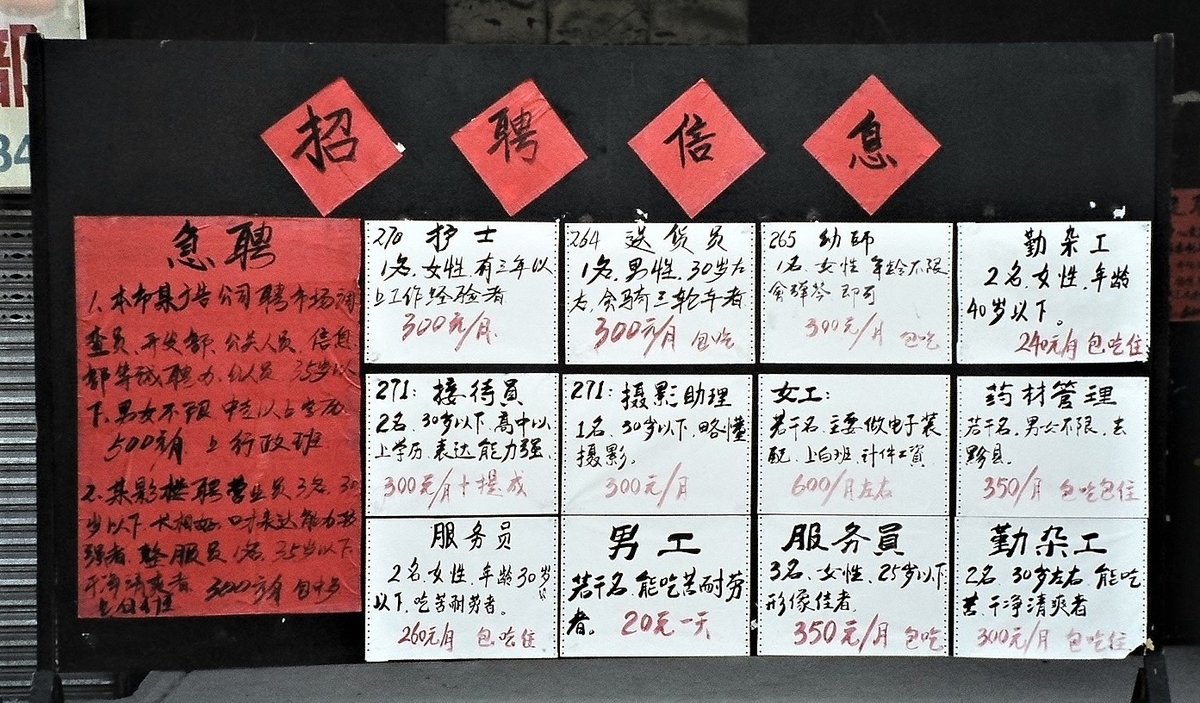 招聘信息
急聘
1.本市某广告公司聘市场调
查员、开发部、公关人员、信息
部等诚聘办公人员 35岁以
下.男女不限 中专以上学历
500元/月 上行政班
2.某影楼聘营业员3名,30
岁以下 长相好 口才表达能力较
强者,整服员1名,35岁以下
干净清爽者 300元/月 包中餐
270 护士
1名,女性,有三年以
上工作经验者
300元/月.
264 送货员
1名,男性,30岁左
右,会骑三轮车者
300元/月 包吃
265 幼师
1名.女性 年龄不限
会弹琴 即可
300元/月 包吃
勤杂工
2名,女性,年龄
40岁以下。
240元/月 包吃住
271: 接待员
2名,30岁以下,高中以
上学历.表达能力强.
300元/月+提成
271: 摄影助理
1名,30岁以下,略懂
摄影.
300元/月
女工:
若干名.主要做电子装
配.上白班.计件工資.
600/月左右
药材管理
若干名.男女不限.去
黟县.
350/月 包吃包住
服务员
2名,女性,年龄30岁
以下.吃苦耐劳者。
260元/月 包吃住
男工
若干名 能吃苦耐劳
者。 20元一天
服务員
3名、女性、25岁以下
形像佳者.
350元/月 包吃
勤杂工
2名,30岁左右 能吃
苦 干净清爽者
300元/月 包吃住